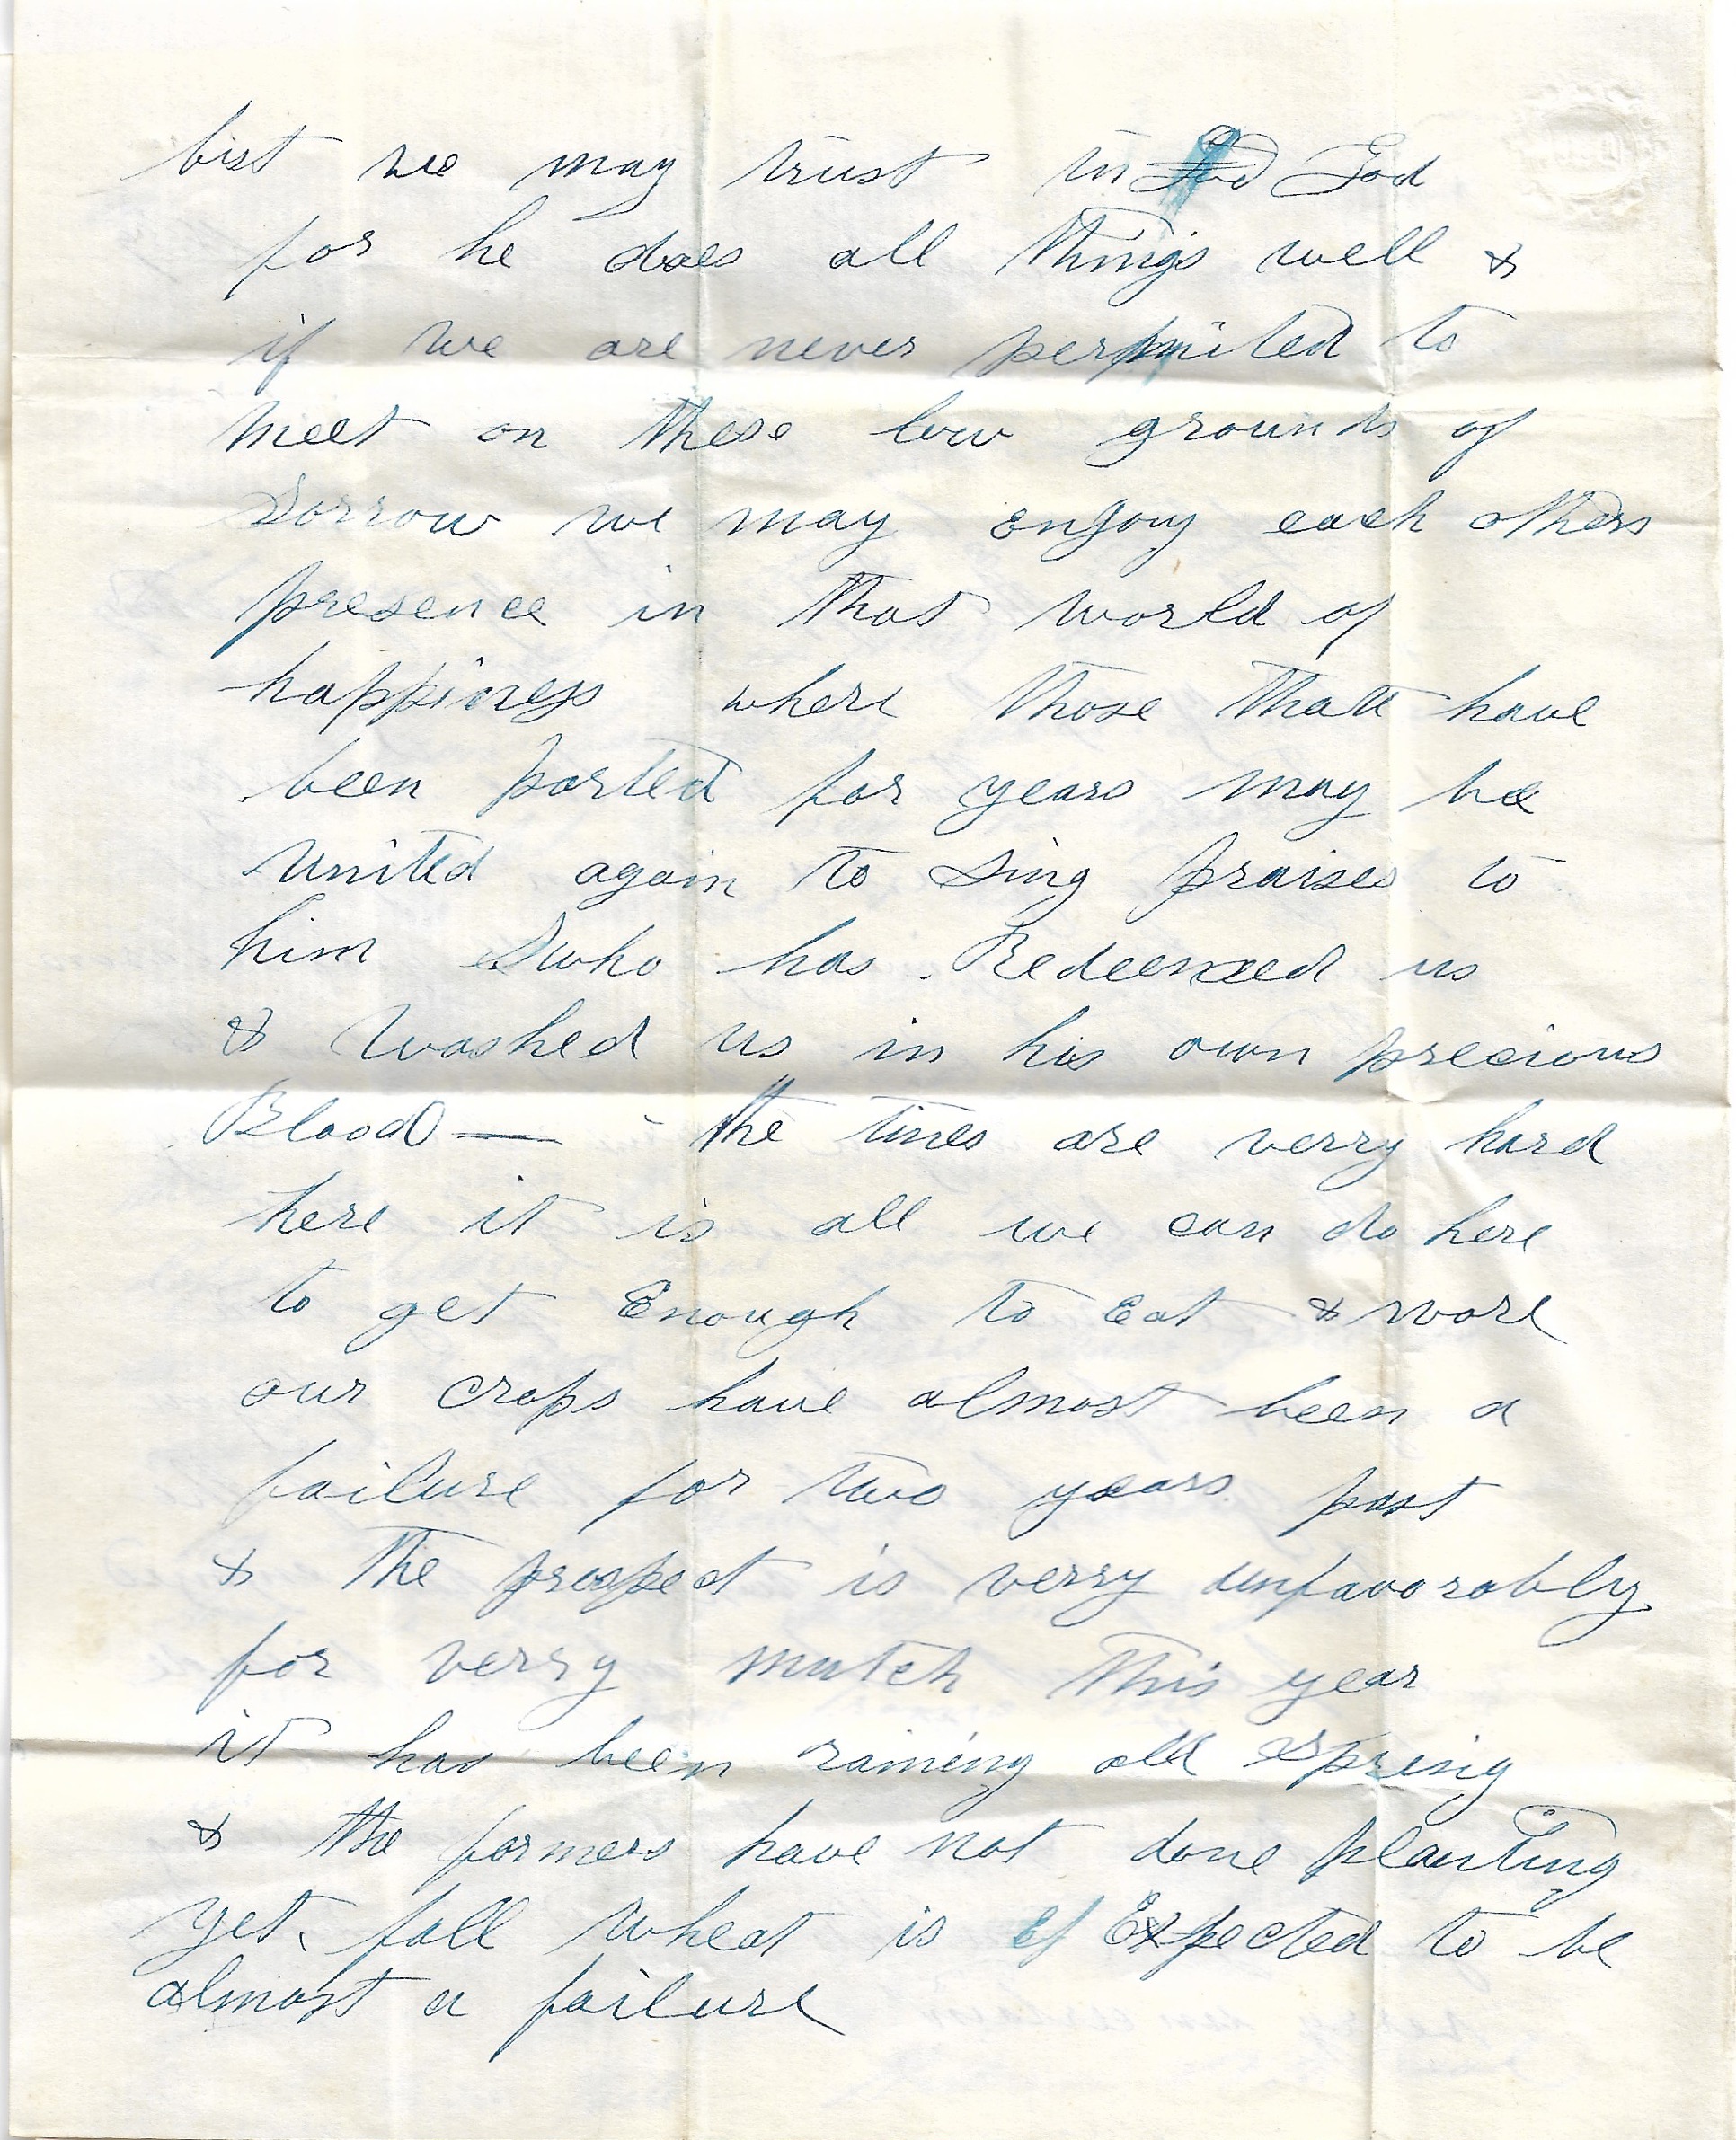 bist we may trust in God God
for he does all things well &
if we are never permited to
meet on these low grounds of
Sorrow we may enjoy each others
presence in that world of
happiness where those that have
been parted for years may be
united again to Sing praises to
him who has Redeemed us
& washed us in his own precious
Blood — the times are verry hard
here it is all we can do here
to get Enough to Eat & ware
our crops have almost been a
failure for two years past
& the prospect is verry unfavorably
for verry mutch this year
it has been raining all spring
& the farmers have not done planting
yet. fall wheat is Expected to be
almost a failure